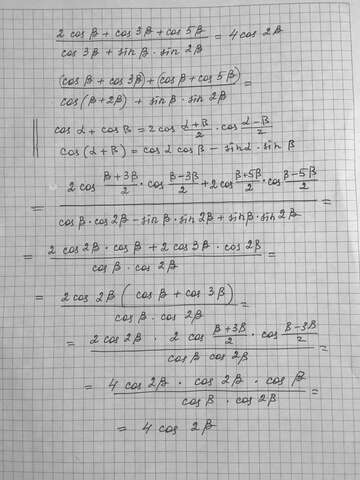 (2 cos β + cos 3β + cos 5β) / (cos 3β + sin β · sin 2β) = 4 cos 2β
((cos β + cos 3β) + (cos β + cos 5β)) / (cos(β + 2β) + sin β · sin 2β) =
cos α + cos β = 2 cos (α+β)/2 · cos (α-β)/2
cos(α+β) = cos α cos β - sin α · sin β
= (2 cos (β+3β)/2 · cos (β-3β)/2 + 2 cos (β+5β)/2 · cos (β-5β)/2) / (cos β · cos 2β - sin β · sin 2β + sin β · sin 2β) =
= (2 cos 2β · cos β + 2 cos 3β · cos 2β) / (cos β · cos 2β) =
= (2 cos 2β (cos β + cos 3β)) / (cos β · cos 2β) =
= (2 cos 2β · 2 cos (β+3β)/2 · cos (β-3β)/2) / (cos β cos 2β) =
= (4 cos 2β · cos 2β · cos β) / (cos β · cos 2β) =
= 4 cos 2β